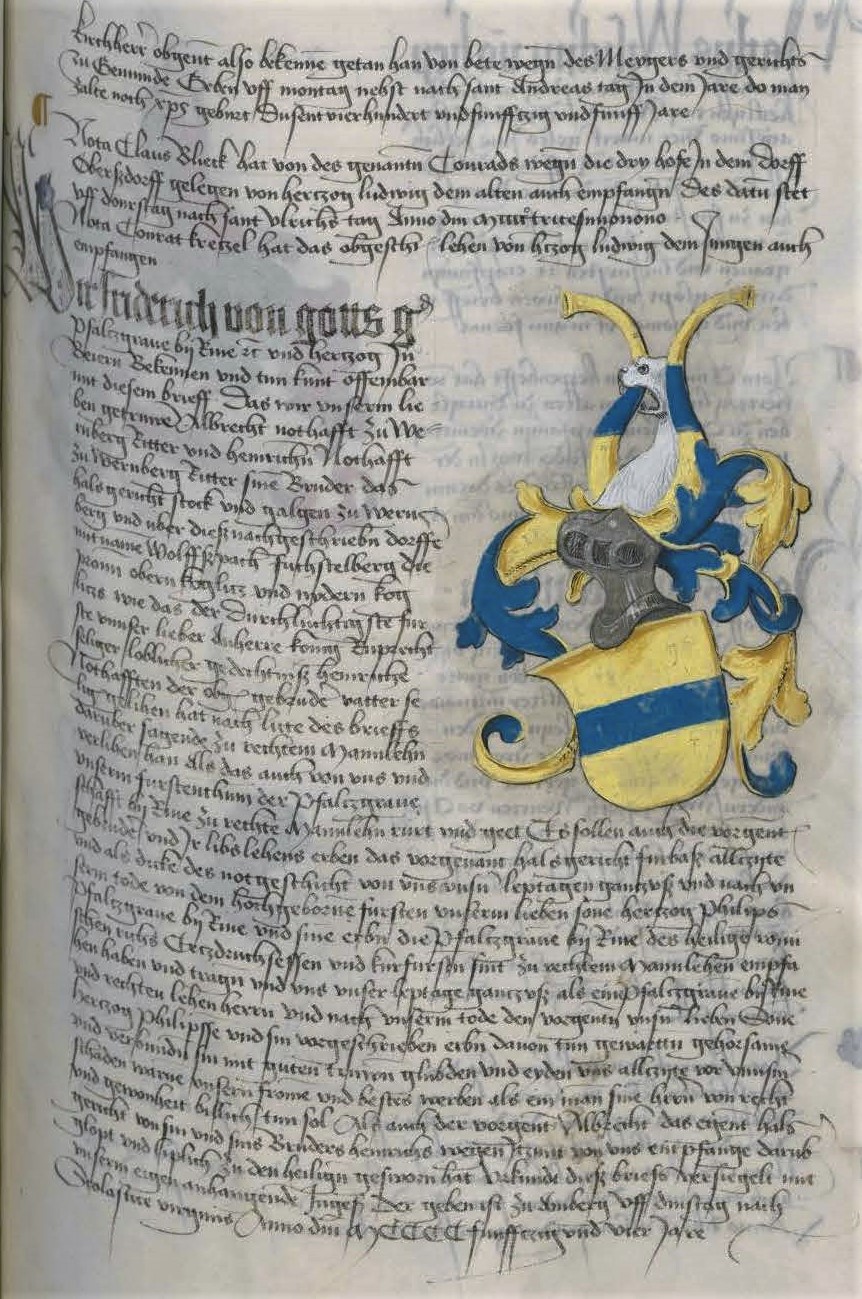 kirchherr obgent also bekenne getan han von bete wegen des Meygers und gerichts
zu Gemunde Geben uff montag nehst nach sant Andreas tag In dem Jare do man
zalte noch xps geburt Dusent vierhundert undfunfftzig undfunff Jare
Nota Claus Bueck hat von des genantn Conrads wegn die dry hofe In dem dorff
Obersßdorff gelegen von hertzog ludwig dem alten auch empfangn Des datu stet
uff donrstag nach sant vlrichs tag Anno dm tricesimonono
Nota Conrat kretzel hat das obgeschr lehen von htzog ludwig dem Jungen auch
empfangen
Wir friderich von gotts g
pfaltzgrave by Rine rc und hertzog In
Beiern Bekennen und tun kunt offembar
mit diesem brieff Das wir vnserm lie
ben getruwe Albrecht nothafft zu We
rnberg Ritter und heinrichn Nothafft
zu wernberg Ritter sine Bruder das
halsgericht stock und galgen zu wern
berg und uber dieß nachgeschriebn dorffe
mit name Wolffßpach fuchstelberg die
obern koglitz und nydern kog
litz wie das der Durchluchtigste fur
ste vnser lieber Anherre konig Ruprecht
seliger loblicher gedechtniß heinriche
Nothafften der obg gebrude vatter se
lig geliben hat nach lute des brieffs
daruber sagende zu rechtem Mannlehn
verliben han Als das auch von vns und
vnserm furstenthum der Pfaltzgrave
schafft by Rine zu rechte Mannlehn rurt und geet Es sollen auch die vorgent
gebrude und Ir libslehens erben das vorgenant halsgericht furbaß allczyte
und als dicke des notgeschicht von vns vnsn leptagen gantzuß und nach vn
serm tode von dem hochgeborne fursten vnserm lieben sone hertzog Philips
Pfaltzgrave by Rine und sine erbn die Pfaltzgrave by Rine des heilige romi
schen richs Ertzdruchsessen und kurfursten sint zu rechtem Mannlehen empfa
hen haben und tragn und vns vnser leptage gantzuß als ein Pfaltzgrave by Rine
und rechten lehen herrn und nach vnserm tode den vorgentn vnsn lieben Sone
hertzog Philipsse und sin vorgeschrieben erbn davon tun gewartn gehorsame
und verbundn sin mit guten truwn glubden und eyden vns allczyte vor vnnsin
schaden warne vnsern frome und bestes werben als ein man sine hern von recht
und gewonheit billich tun sol Als auch der vorgent Albrecht das egent hals
gericht von sin und sins Bruders heinrichs wegen Itzunt von vns entpfange darub
glopt und liplich zu den heilign gesworn hat vrkundt dieß brieffs versiegelt mit
vnserm eigen anhangende Ingeß Der geben ist zu Amberg uff dinstag nach
Scolastice virginis Anno dm MCCCC funfftzig und vier Jare